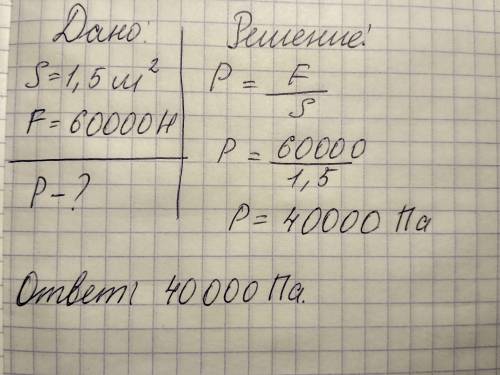 Дано:
S=1,5 м²
F=60000Н
P-?
Решение:
P = F/S
P = 60000/1,5
P= 40000 Па
Ответ: 40000 Па.